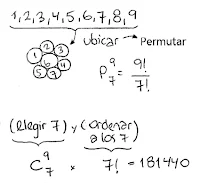 1,2,3,4,5,6,7,8,9
ubicar → Permutar
1 2 3 6 4 5 7
P⁹₇ = 9!/7!
(elegir 7) y (ordenar a los 7)
C⁹₇ × 7! = 181440